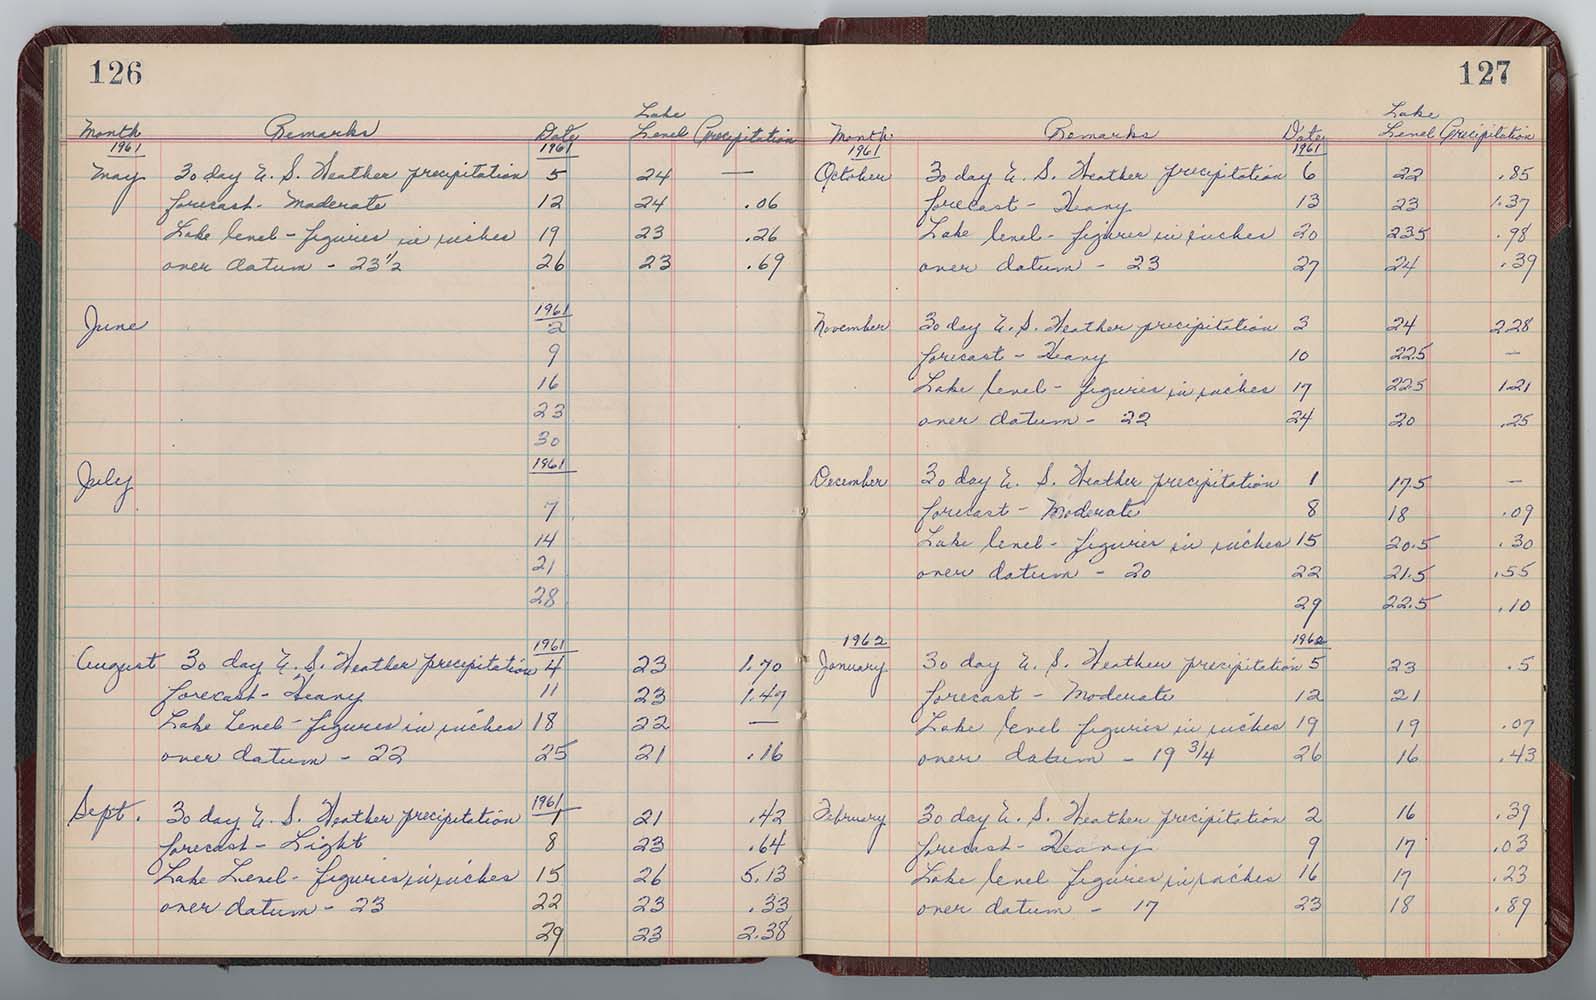 126
Lake
Month Remarks Date Level Precipitation
1961 1961
May 30 day U. S. Weather precipitation 5 24 —
forecast - Moderate 12 24 .06
Lake level - figures in inches 19 23 .26
over datum - 23 1/2 26 23 .69
1961
June 2
9
16
23
30
1961
July
7
14
21
28
1961
August 30 day U. S. Weather precipitation 4 23 1.70
forecast - Heavy 11 23 1.47
Lake Level - figures in inches 18 22 —
over datum - 22 25 21 .16
1961
Sept. 30 day U. S. Weather precipitation 1 21 .42
forecast - Light 8 23 .64
Lake Level - figures in inches 15 26 5.13
over datum - 23 22 23 .33
29 23 2.38
127
Lake
Month Remarks Date Level Precipitation
1961 1961
October 30 day U. S. Weather precipitation 6 22 .85
forecast - Heavy 13 23 1.37
Lake level - figures in inches 20 235 .98
over datum - 23 27 24 .39
November 30 day U. S. Weather precipitation 3 24 2.28
forecast - Heavy 10 22.5 —
Lake level - figures in inches 17 22.5 1.21
over datum - 22 24 20 .25
December 30 day U. S. Weather precipitation 1 17.5 —
forecast - Moderate 8 18 .09
Lake level - figures in inches 15 20.5 .30
over datum - 20 22 21.5 .55
29 22.5 .10
1962 1962
January 30 day U. S. Weather precipitation 5 23 .5
forecast - Moderate 12 21
Lake level figures in inches 19 19 .07
over datum - 19 3/4 26 16 .43
February 30 day U. S. Weather precipitation 2 16 .39
forecast - Heavy 9 17 .03
Lake level figures in inches 16 17 .23
over datum - 17 23 18 .89